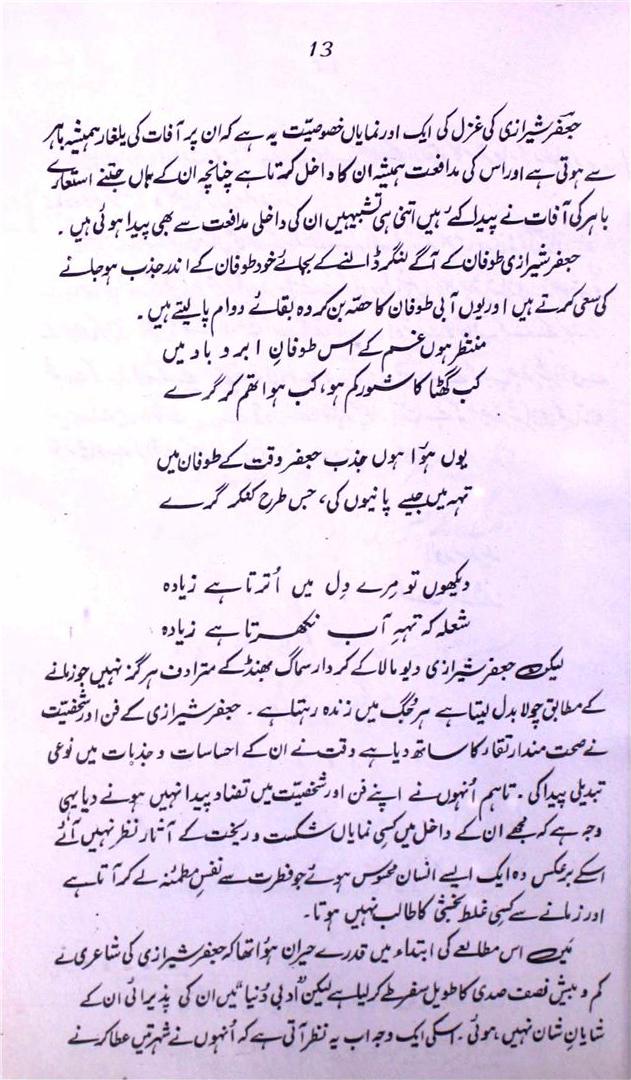 13
جعفر شیرازی کی غزل کی ایک اور نمایاں خصوصیّت یہ ہے کہ ان پر آفات کی یلغار ہمیشہ باہر
سے ہوتی ہے اور اس کی مدافعت ہمیشہ ان کا داخل کرتا ہے چنانچہ ان کے ہاں جتنے استعارے
باہر کی آفات نے پیدا کئے ہیں اتنی ہی تشبیہیں ان کی داخلی مدافعت سے بھی پیدا ہوئی ہیں۔
جعفر شیرازی طوفان کے آگے لنگر ڈالنے کے بجائے خود طوفان کے اندر جذب ہو جانے
کی سعی کرتے ہیں اور یوں آبی طوفان کا حصّہ بن کر وہ بقائے دوام پا لیتے ہیں۔
منتظر ہوں غم کے اس طوفانِ ابر و باد میں
کب گھٹا کا شور کم ہو، کب ہوا تھم کر گرے
یوں ہُوا ہوں جذب جعفر وقت کے طوفان میں
تہہ میں جیسے پانیوں کی، جس طرح کنکر گرے
دیکھوں تو مِرے دِل میں اُترتا ہے زیادہ
شعلہ کہ تہہِ آب نکھرتا ہے زیادہ
لیکن جعفر شیرازی دیو مالا کے کردار سماگ بھنڈ کے مترادف ہرگز نہیں جو زمانے
کے مطابق چولا بدل لیتا ہے ہر جُگ میں زندہ رہتا ہے۔ جعفر شیرازی کے فن اور شخصیّت
نے صحت مند ارتقاء کا ساتھ دیا ہے وقت نے ان کے احساسات و جذبات میں نوعی
تبدیلی پیدا کی۔ تاہم اُنہوں نے اپنے فن اور شخصیّت میں تضاد پیدا نہیں ہونے دیا یہی
وجہ ہے کہ مجھے ان کے داخل میں کسی نمایاں شکست و ریخت کے آثار نظر نہیں آئے
اسکے برعکس وہ ایک ایسے انسان محسوس ہوئے جو فطرت سے نفسِ مطمئنہ لے کر آتا ہے
اور زمانے سے کسی غلط بخشی کا طالب نہیں ہوتا۔
میں اس مطالعے کی ابتداء میں قدرے حیران ہُوا تھا کہ جعفر شیرازی کی شاعری نے
کم و بیش نصف صدی کا طویل سفر طے کر لیا ہے لیکن "ادبی دُنیا" میں ان کی پذیرائی ان کے
شایانِ شان نہیں ہوئی۔ اسکی ایک وجہ اب یہ نظر آتی ہے کہ اُنہوں نے شہرتیں عطا کرنے